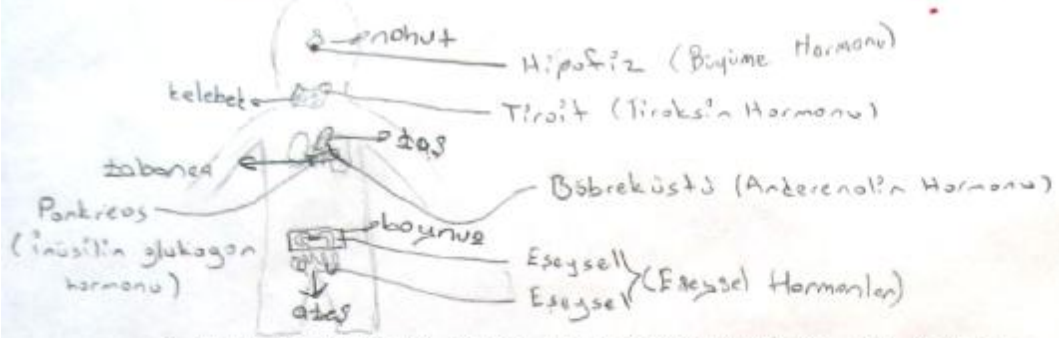 nohut
Hipofiz (Büyüme Hormonu)
kelebek
Tiroit (Tiroksin Hormonu)
taş
tabanca
Böbreküstü (Anderenalin Hormonu)
Pankreas
(inüsilin glukagon
hormonu)
boynuz
Eşeysell
Eşeysel
(Eşeysel Hormonlar)
ateş